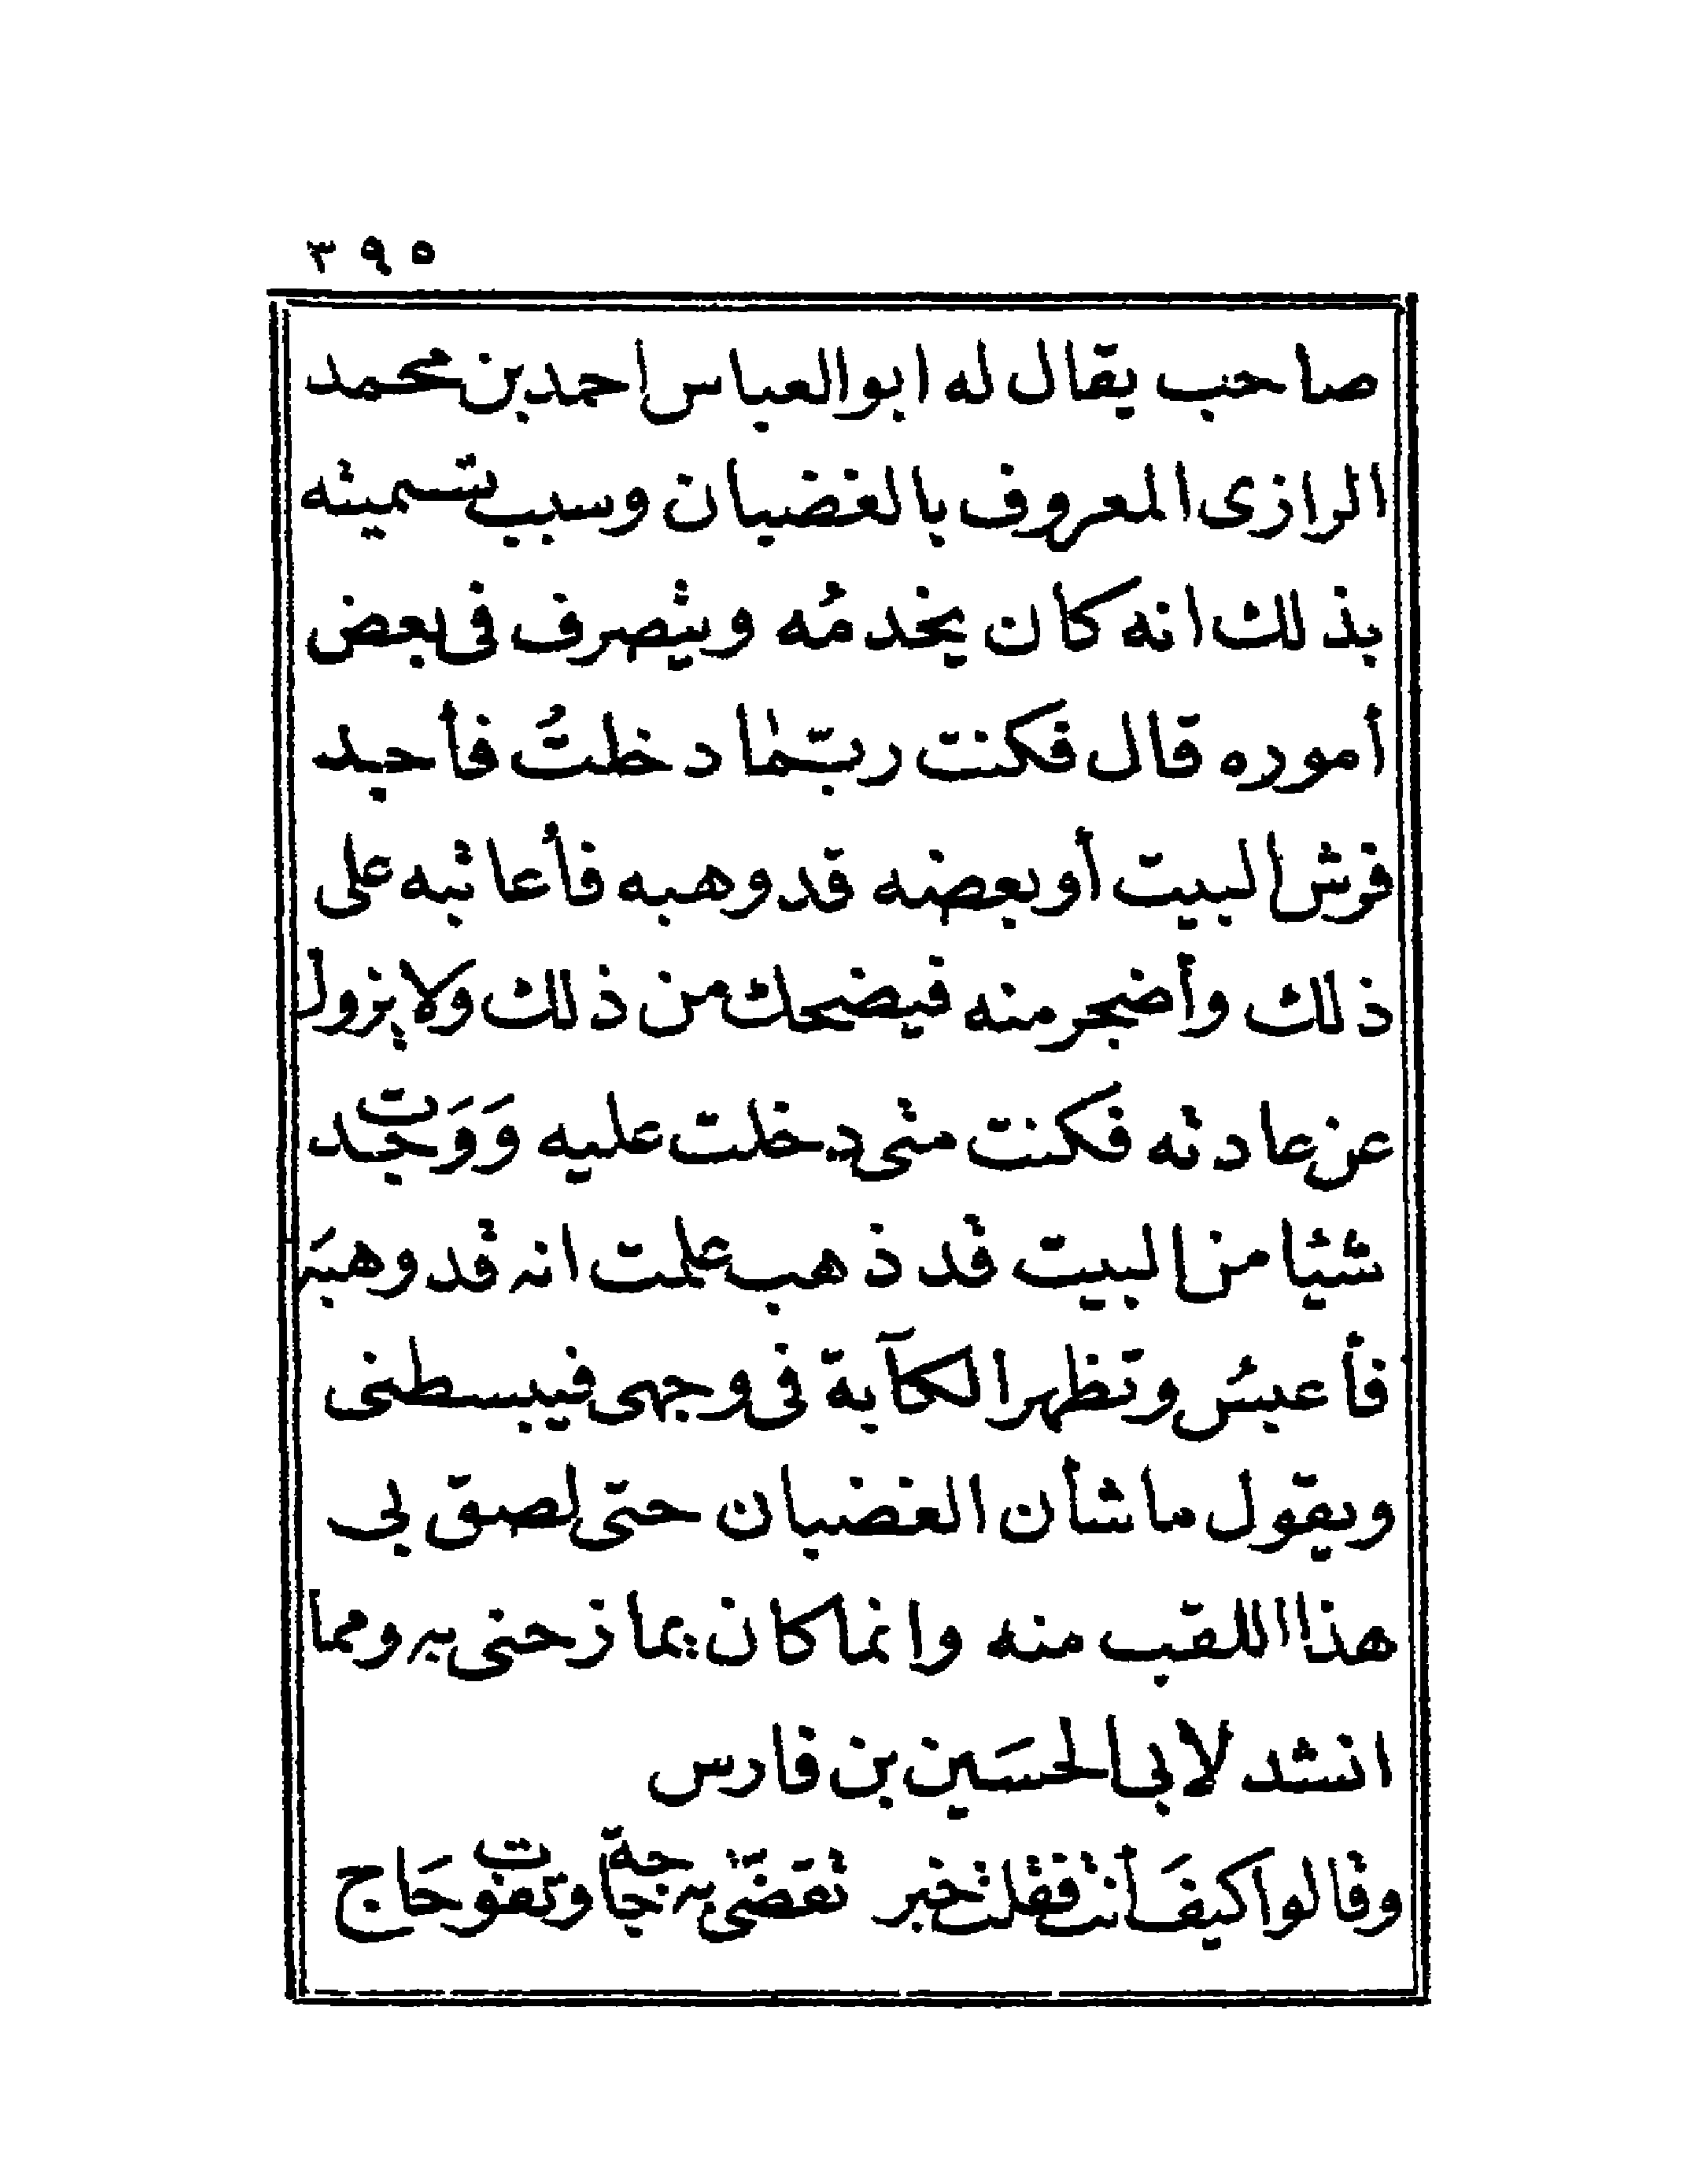 ٣٩٥
صاحب يقال له ابو العباس احمد بن محمد
الرازى المعروف بالغضبان وسبب تسميته
بذلك انه كان يخدمُه ويتصرف فى بعض
أموره قال فكنت ربّما دخلتُ فأجد
فرش البيت أو بعضه قد وهبه فأعاتبه على
ذلك وأضجر منه فيضحك من ذلك ولا يزول
عن عادته فكنت متى دخلت عليه وَوَجدت
شيئا من البيت قد ذهب علمت انه قد وهبَه
فأعبسُ وتظهر الكآبة فى وجهى فيبسطنى
ويقول ما شأن الغضبان حتى لصق بى
هذا اللقب منه وانما كان يمازحنى به ومما
انشد لابى الحسَين بن فارس
وقالوا كيفَ أنت فقلت خير تقضّى حاجة وتفوت حَاج